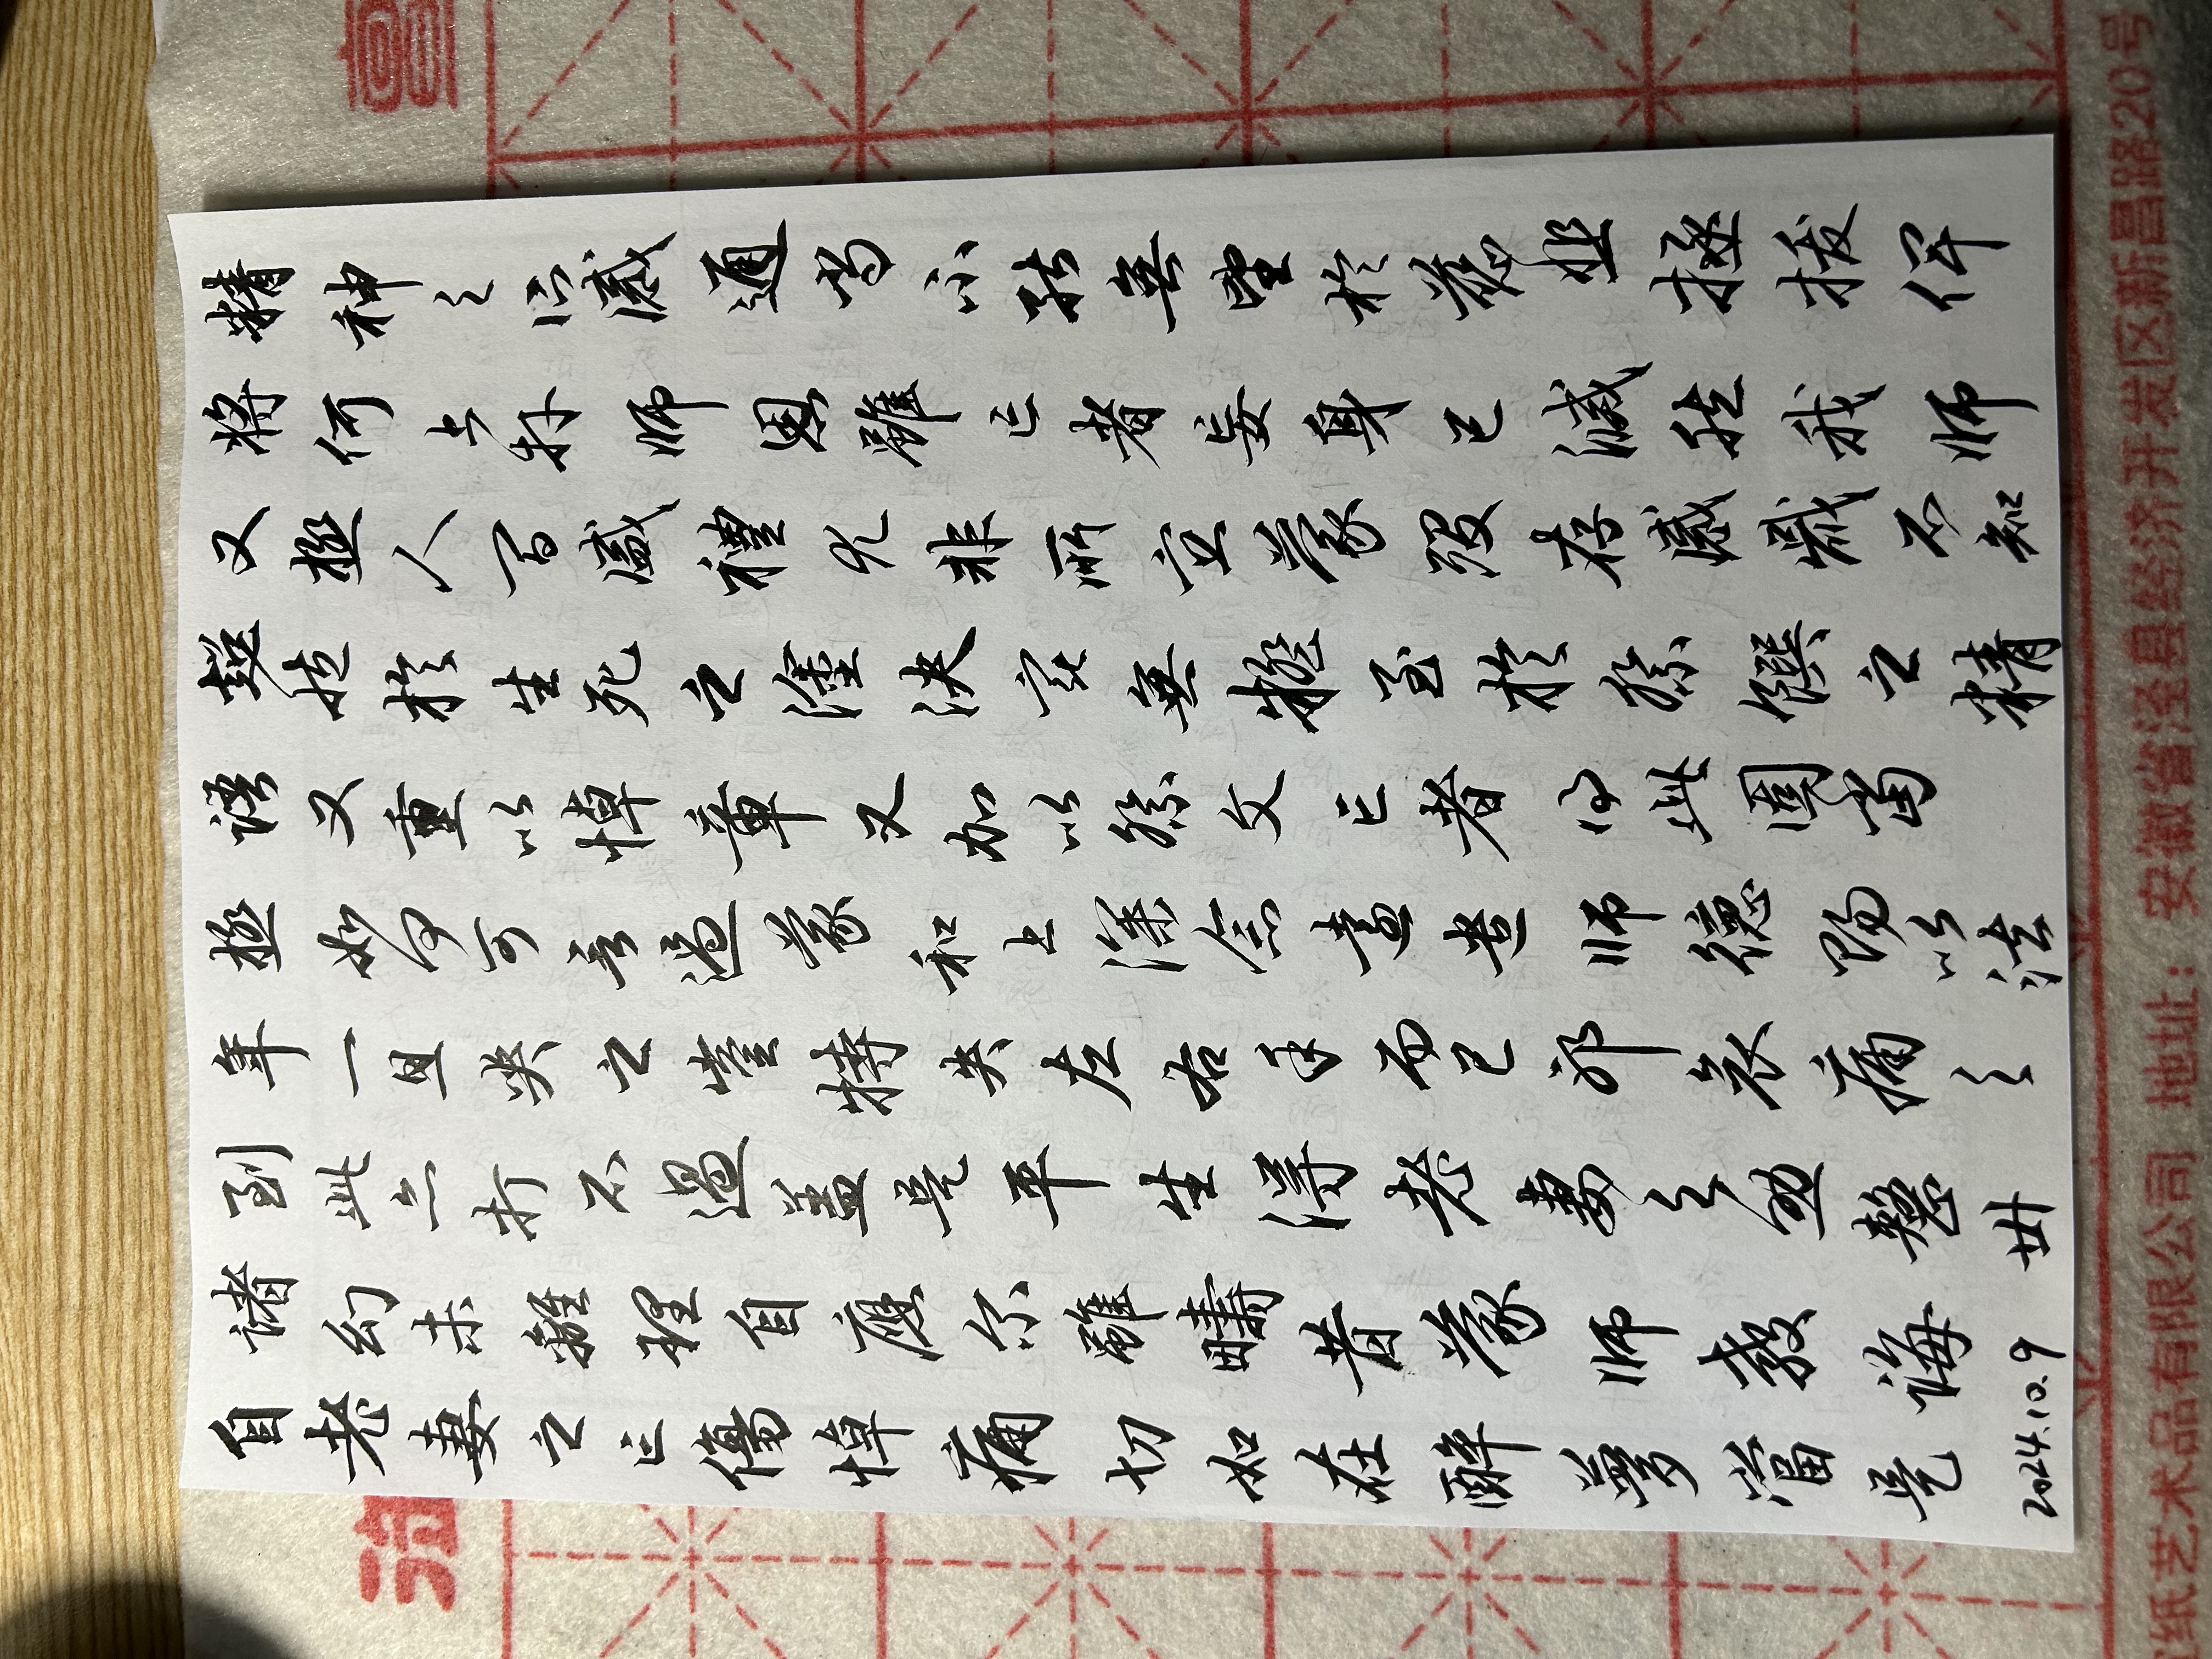 精神之所感通尚不能無望於慈悲拯拔俾
將何上拜師恩雖亡者妄身已滅然我師
又極人間盛禮尤非所宜蒙歿存感戢不知
超然於生死之塗決定無疑至於祭饌之精
語又重以悼章又加以祭文亡者得此固當
極如何可言過蒙和上深念遠遣師德賜以法
年一旦哭之豈特失左右手而已耶哀痛之
到此亦打不過蓋是平生得老妻之助整卅
諸幻未離理自應尔雖疇昔蒙師教誨
自老妻之亡傷悼痛切如在醉夢當是
2024.10.9
宣紙艺术品有限公司 地址：安徽省泾县经济开发区新昌路20号